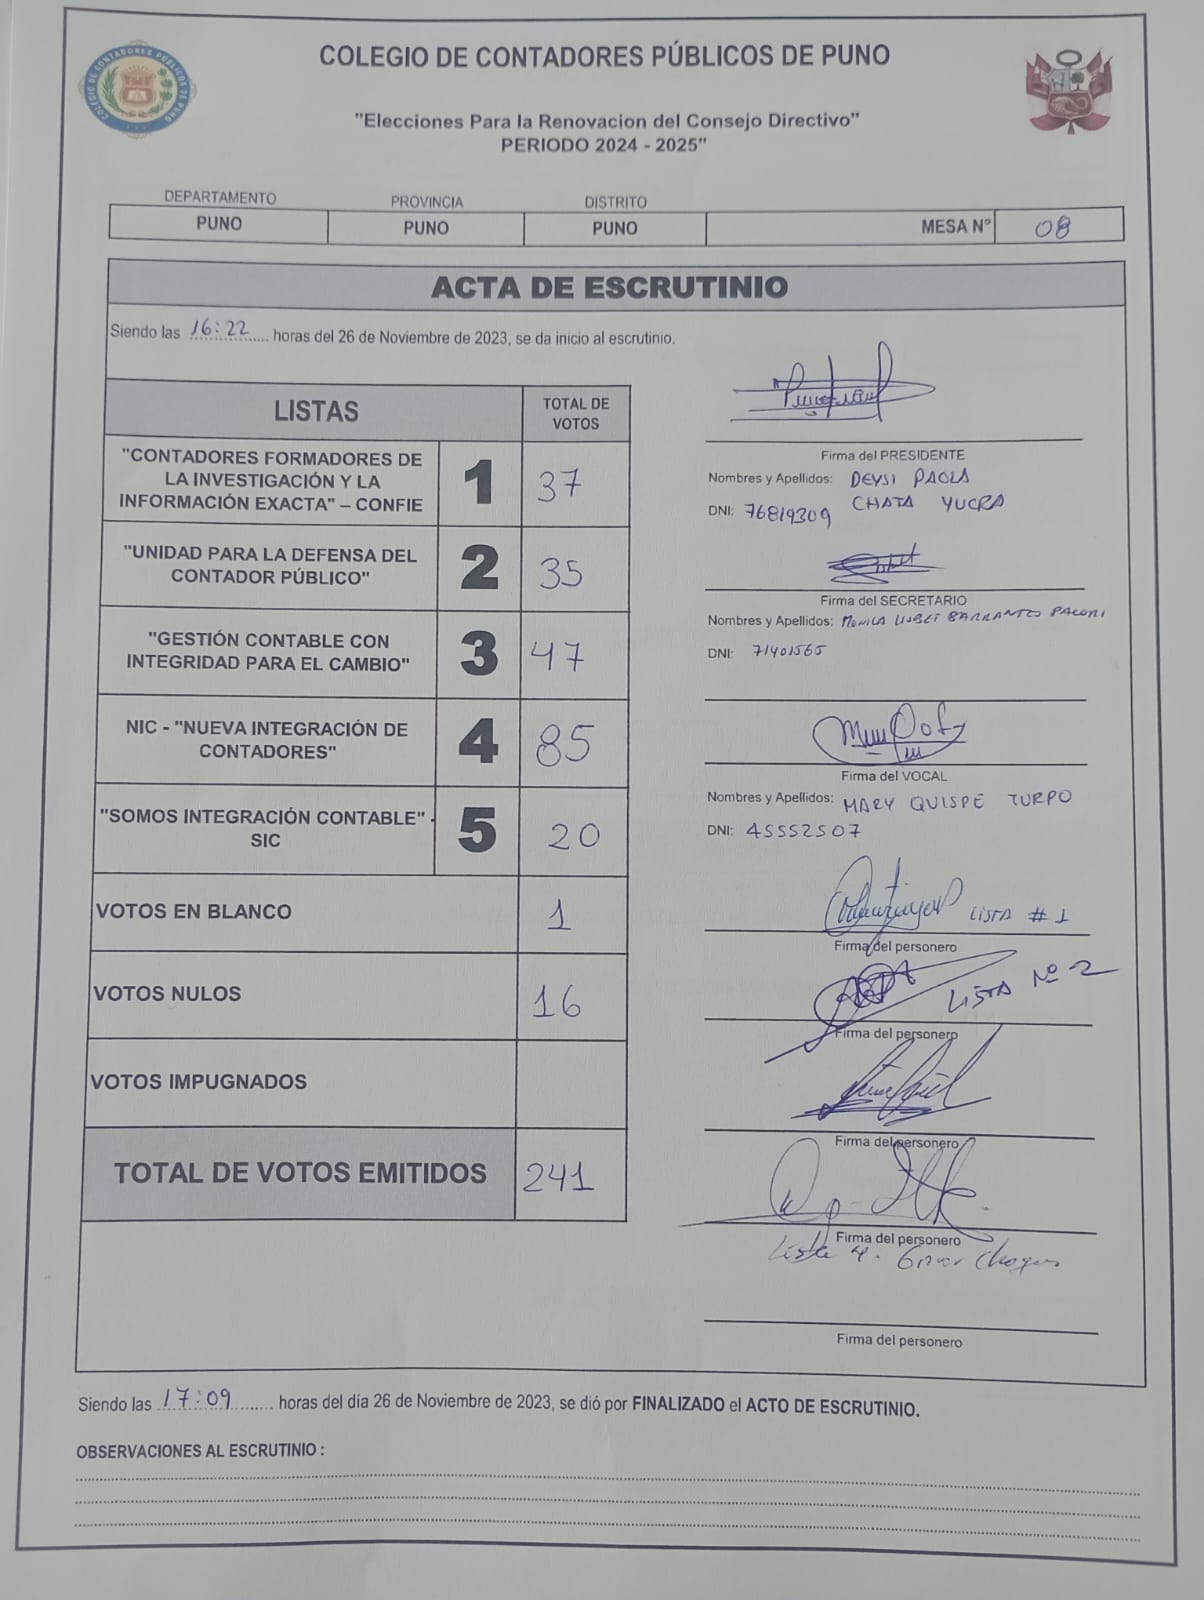 COLEGIO DE CONTADORES PÚBLICOS DE PUNO
"Elecciones Para la Renovacion del Consejo Directivo"
PERIODO 2024 - 2025"
DEPARTAMENTO PROVINCIA DISTRITO
PUNO PUNO PUNO MESA N° 08
ACTA DE ESCRUTINIO
Siendo las 16:22 horas del 26 de Noviembre de 2023, se da inicio al escrutinio.
LISTAS TOTAL DE VOTOS
"CONTADORES FORMADORES DE
LA INVESTIGACIÓN Y LA
INFORMACIÓN EXACTA" – CONFIE
1 37
"UNIDAD PARA LA DEFENSA DEL
CONTADOR PÚBLICO"
2 35
"GESTIÓN CONTABLE CON
INTEGRIDAD PARA EL CAMBIO"
3 47
NIC - "NUEVA INTEGRACIÓN DE
CONTADORES"
4 85
"SOMOS INTEGRACIÓN CONTABLE" -
SIC
5 20
VOTOS EN BLANCO 1
VOTOS NULOS 16
VOTOS IMPUGNADOS
TOTAL DE VOTOS EMITIDOS 241
Firma del PRESIDENTE
Nombres y Apellidos: DEYSI PAOLA
CHATA YUCRA
DNI: 76819309
Firma del SECRETARIO
Nombres y Apellidos: MONICA LISBET BARRANTES PACORI
DNI: 71401565
Firma del VOCAL
Nombres y Apellidos: MARY QUISPE TURPO
DNI: 45552507
LISTA # 1
Firma del personero
LISTA Nº 2
Firma del personero
Firma del personero
Firma del personero
Lista 4.
Firma del personero
Siendo las 17:09 horas del día 26 de Noviembre de 2023, se dió por FINALIZADO el ACTO DE ESCRUTINIO.
OBSERVACIONES AL ESCRUTINIO :